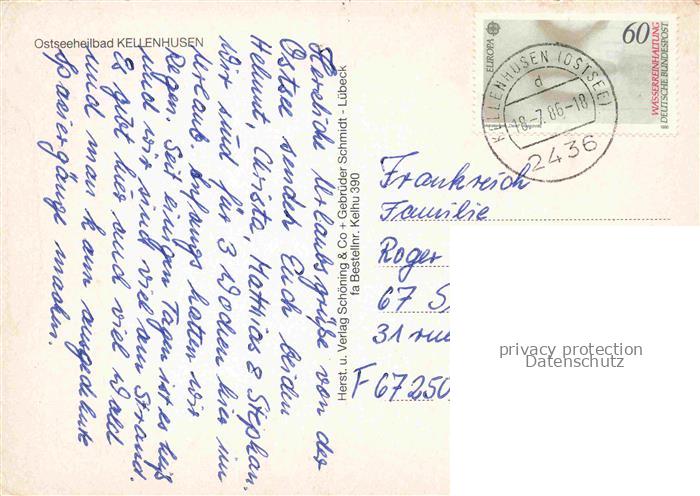 Ostseeheilbad KELLENHUSEN
Herzliche Urlaubsgrüße von der
Ostsee senden Euch beiden
Helmut, Christa, Matthias & Stephan.
Wir sind für 3 Wochen hier im
Urlaub. Anfangs hatten wir
Regen. Seit einigen Tagen ist es heiß
und wir sind viel am Strand.
Es gibt hier auch viel Wald
und man kann ausgedehnte
Spaziergänge machen.
Herst. u. Verlag Schöning & Co + Gebrüder Schmidt - Lübeck
fa Bestellnr. Kelhu 390
EUROPA
60
WASSERREINHALTUNG
DEUTSCHE BUNDESPOST
KELLENHUSEN (OSTSEE)
d
18.-7.86-18
2436
Frankreich
Familie
Roger
67 S
31 rue
F 67250
privacy protection
Datenschutz